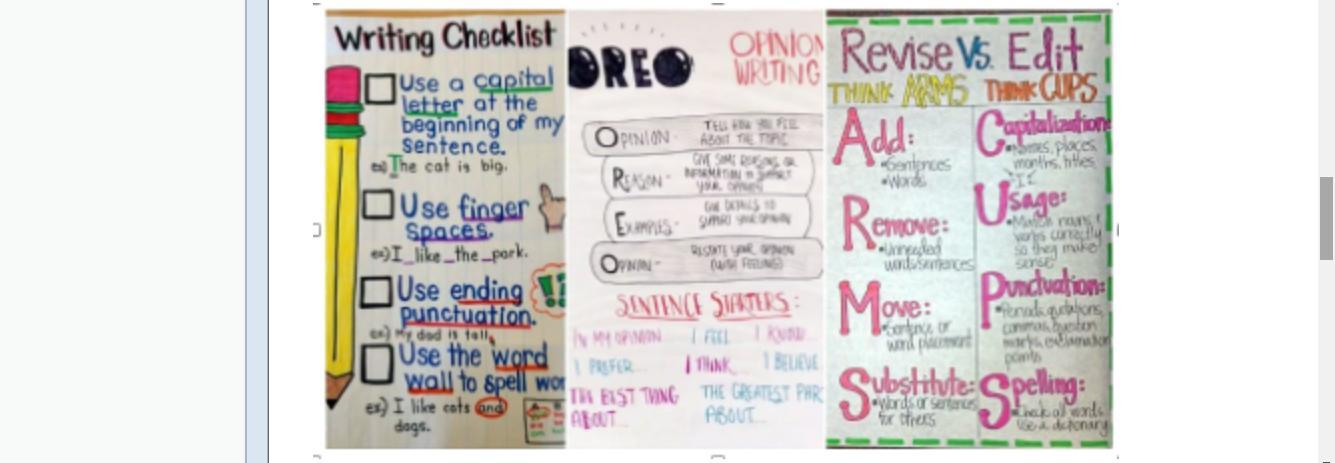 Writing Checklist
Use a capital
letter at the
beginning of my
sentence.
ex) The cat is big.
Use finger
spaces.
ex) I_like_the_park.
Use ending
punctuation.
ex) My dad is tall.
Use the word
wall to spell wor
ex) I like cats and
dogs.
OREO
OPINION
WRITING
OPINION - TELL HOW YOU FEEL
ABOUT THE TOPIC
REASON - GIVE SOME REASONS OR
INFORMATION TO SUPPORT
YOUR OPINION
EXAMPLES - GIVE DETAILS TO
SUPPORT YOUR OPINION
OPINION - RESTATE YOUR OPINION
(WITH FEELING)
SENTENCE STARTERS:
IN MY OPINION I FEEL I KNOW
I PREFER... I THINK... I BELIEVE
THE BEST THING
ABOUT...
THE GREATEST PAR
ABOUT...
Revise Vs. Edit
THINK ARMS THINK CUPS
Add:
•Sentences
•Words
Remove:
•Unneeded
words/sentences
Move:
•Sentence or
word placement
Substitute:
•Words or sentences
for others
Capitalization:
•Names, places,
months, titles,
I
Usage:
•Match nouns &
verbs correctly
so they make
sense
Punctuation:
•Periods, quotations,
commas, question
marks, exclamation
points
Spelling:
•Check all words
use a dictionary